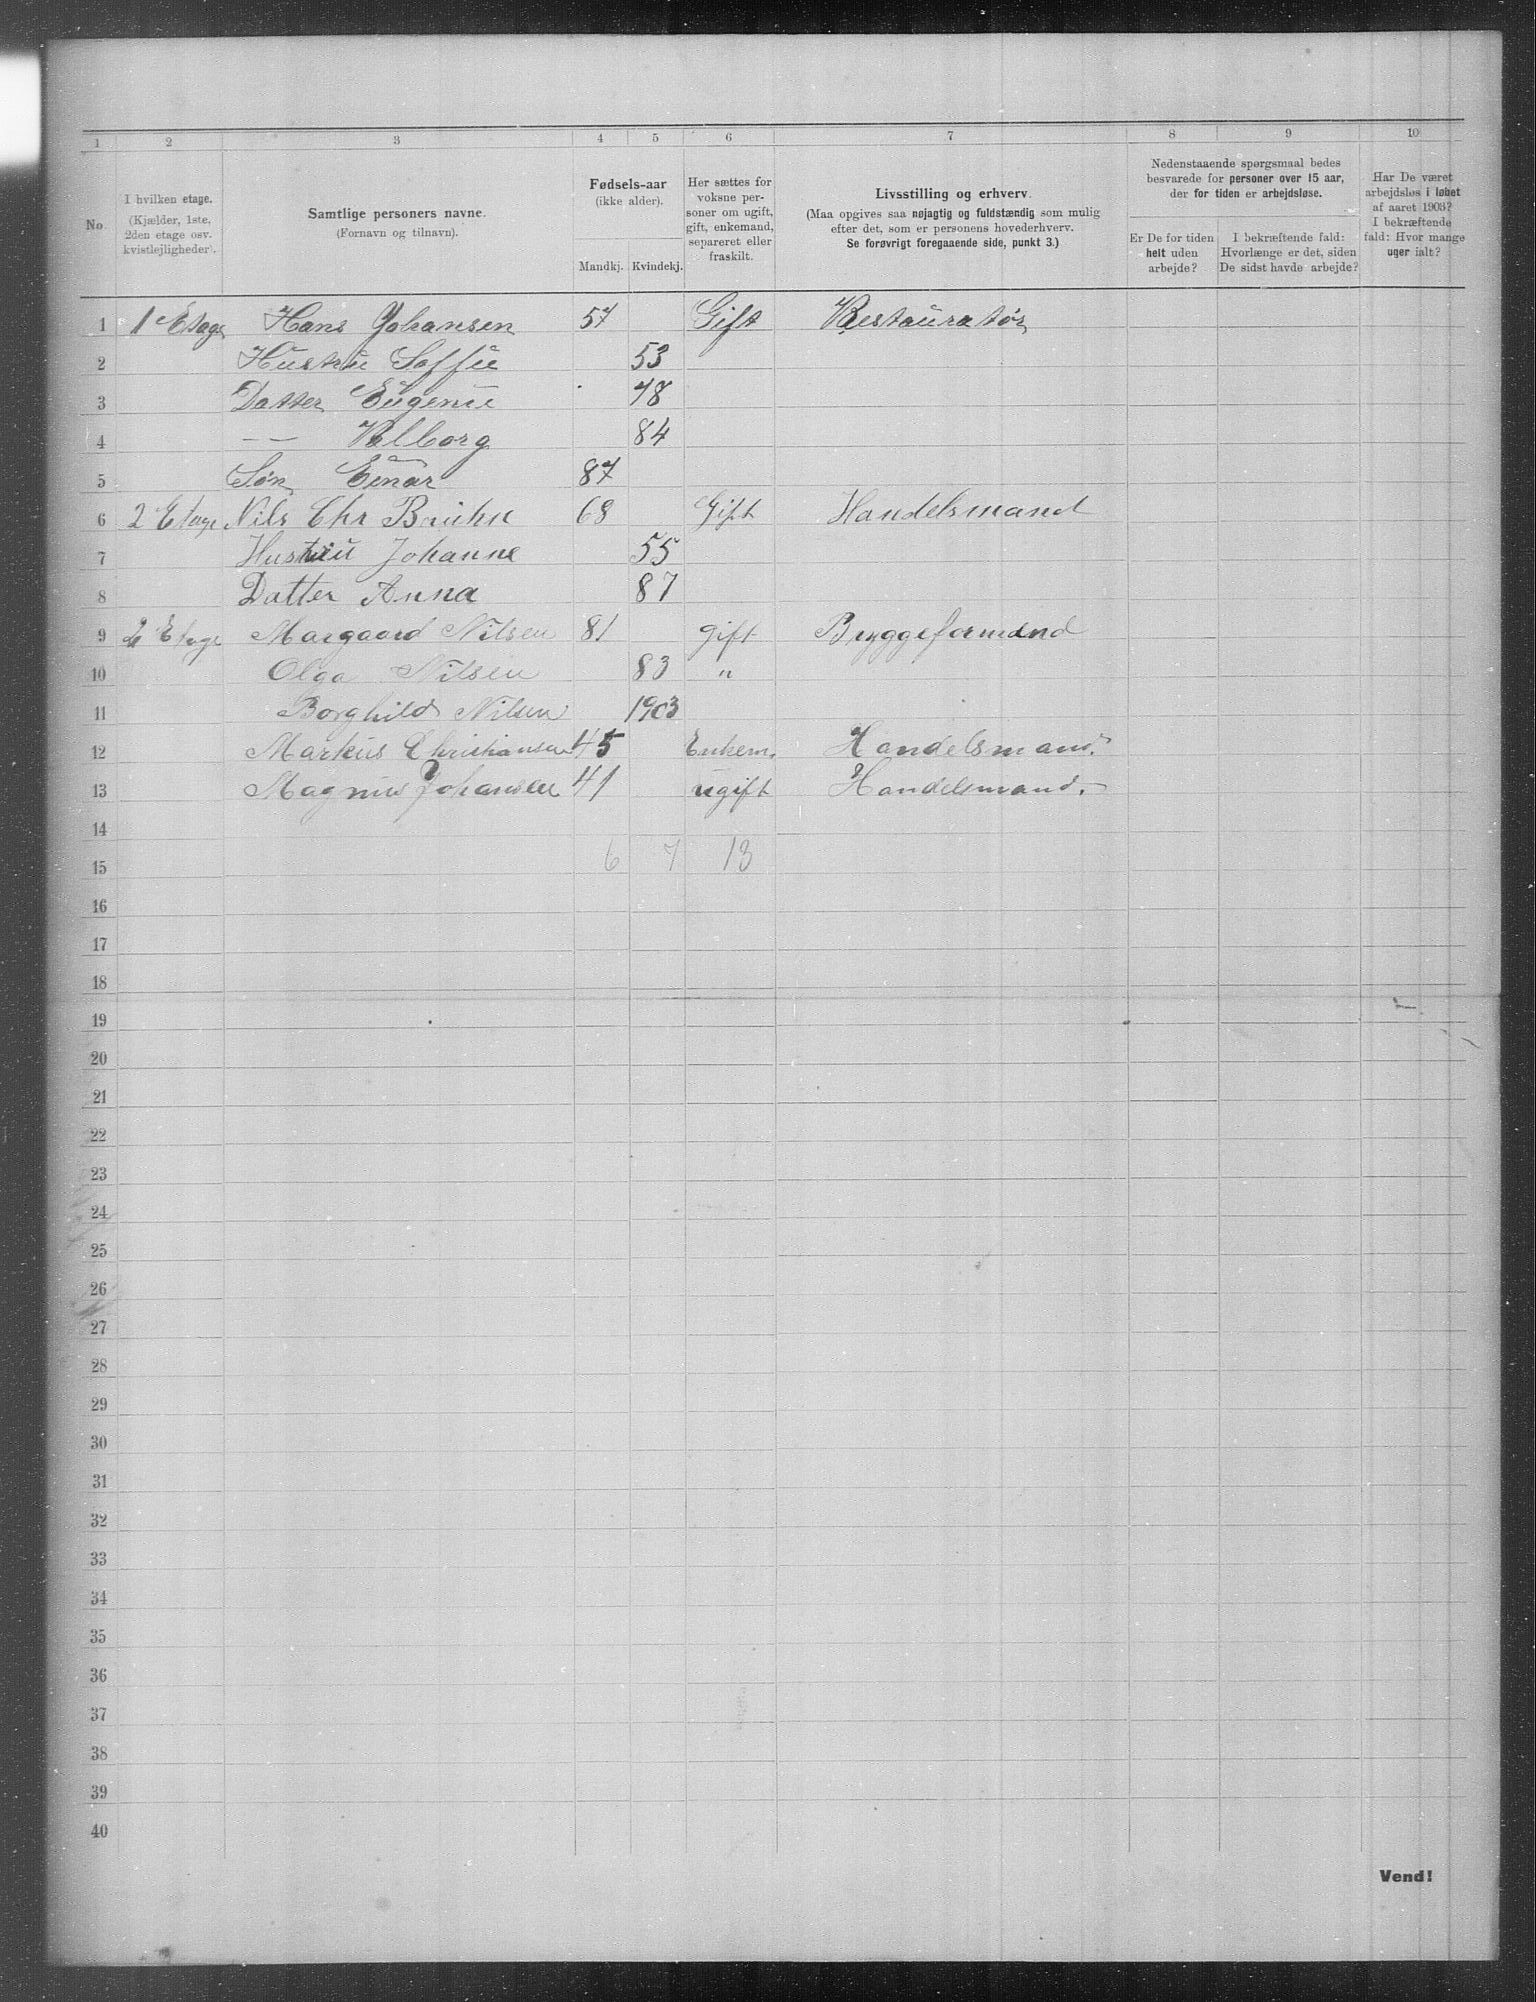 1 2 3 4 5 6 7 8 9 10
No.
I hvilken etage.
(Kjælder, 1ste,
2den etage osv.
kvistlejligheder).
Samtlige personers navne.
(Fornavn og tilnavn).
Fødsels-aar
(ikke alder).
Mandkj. Kvindekj.
Her sættes for
voksne per-
soner om ugift,
gift, enkemand,
separeret eller
fraskilt.
Livsstilling og erhverv.
(Maa opgives saa nøjagtig og fuldstændig som mulig
efter det, som er personens hovederhverv.
Se forøvrigt foregaaende side, punkt 3.)
Nedenstaaende spørgsmaal bedes
besvarede for personer over 15 aar,
der for tiden er arbejdsløse.
Er De for tiden
helt uden
arbejde?
I bekræftende fald:
Hvorlænge er det, siden
De sidst havde arbejde?
Har De været
arbejdsløs i løbet
af aaret 1903?
I bekræftende
fald: Hvor mange
uger ialt?
1 1 Etage Hans Johansen 57 Gift Restauratør
2 Hustru Soffie 53
3 Datter Eugenie 78
4 — — Valborg 84
5 Søn Einar 87
6 2 Etage Nils Chr Bruhn 68 Gift Handelsmand
7 Hustru Johanne 55
8 Datter Anna 87
9 2 Etage Margaard Nilsen 81 gift Bryggeformand
10 Olga Nilsen 83 "
11 Borghild Nilsen 1903
12 Markus Christiansen 45 Enkem. Handelsmand.
13 Magnus Johansen 41 ugift Handelsmand.
14
15 6 7 13
16
17
18
19
20
21
22
23
24
25
26
27
28
29
30
31
32
33
34
35
36
37
38
39
40
Vend!